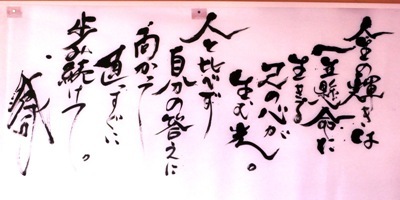 の輝きは
一生懸命に
生きる
己の心が
生む光。
人と比べず
自分の答えに
向かって
真っすぐに
歩み続けて。